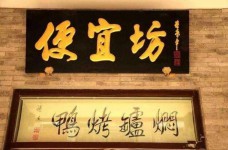 便宜坊
燜鑪烤鴨